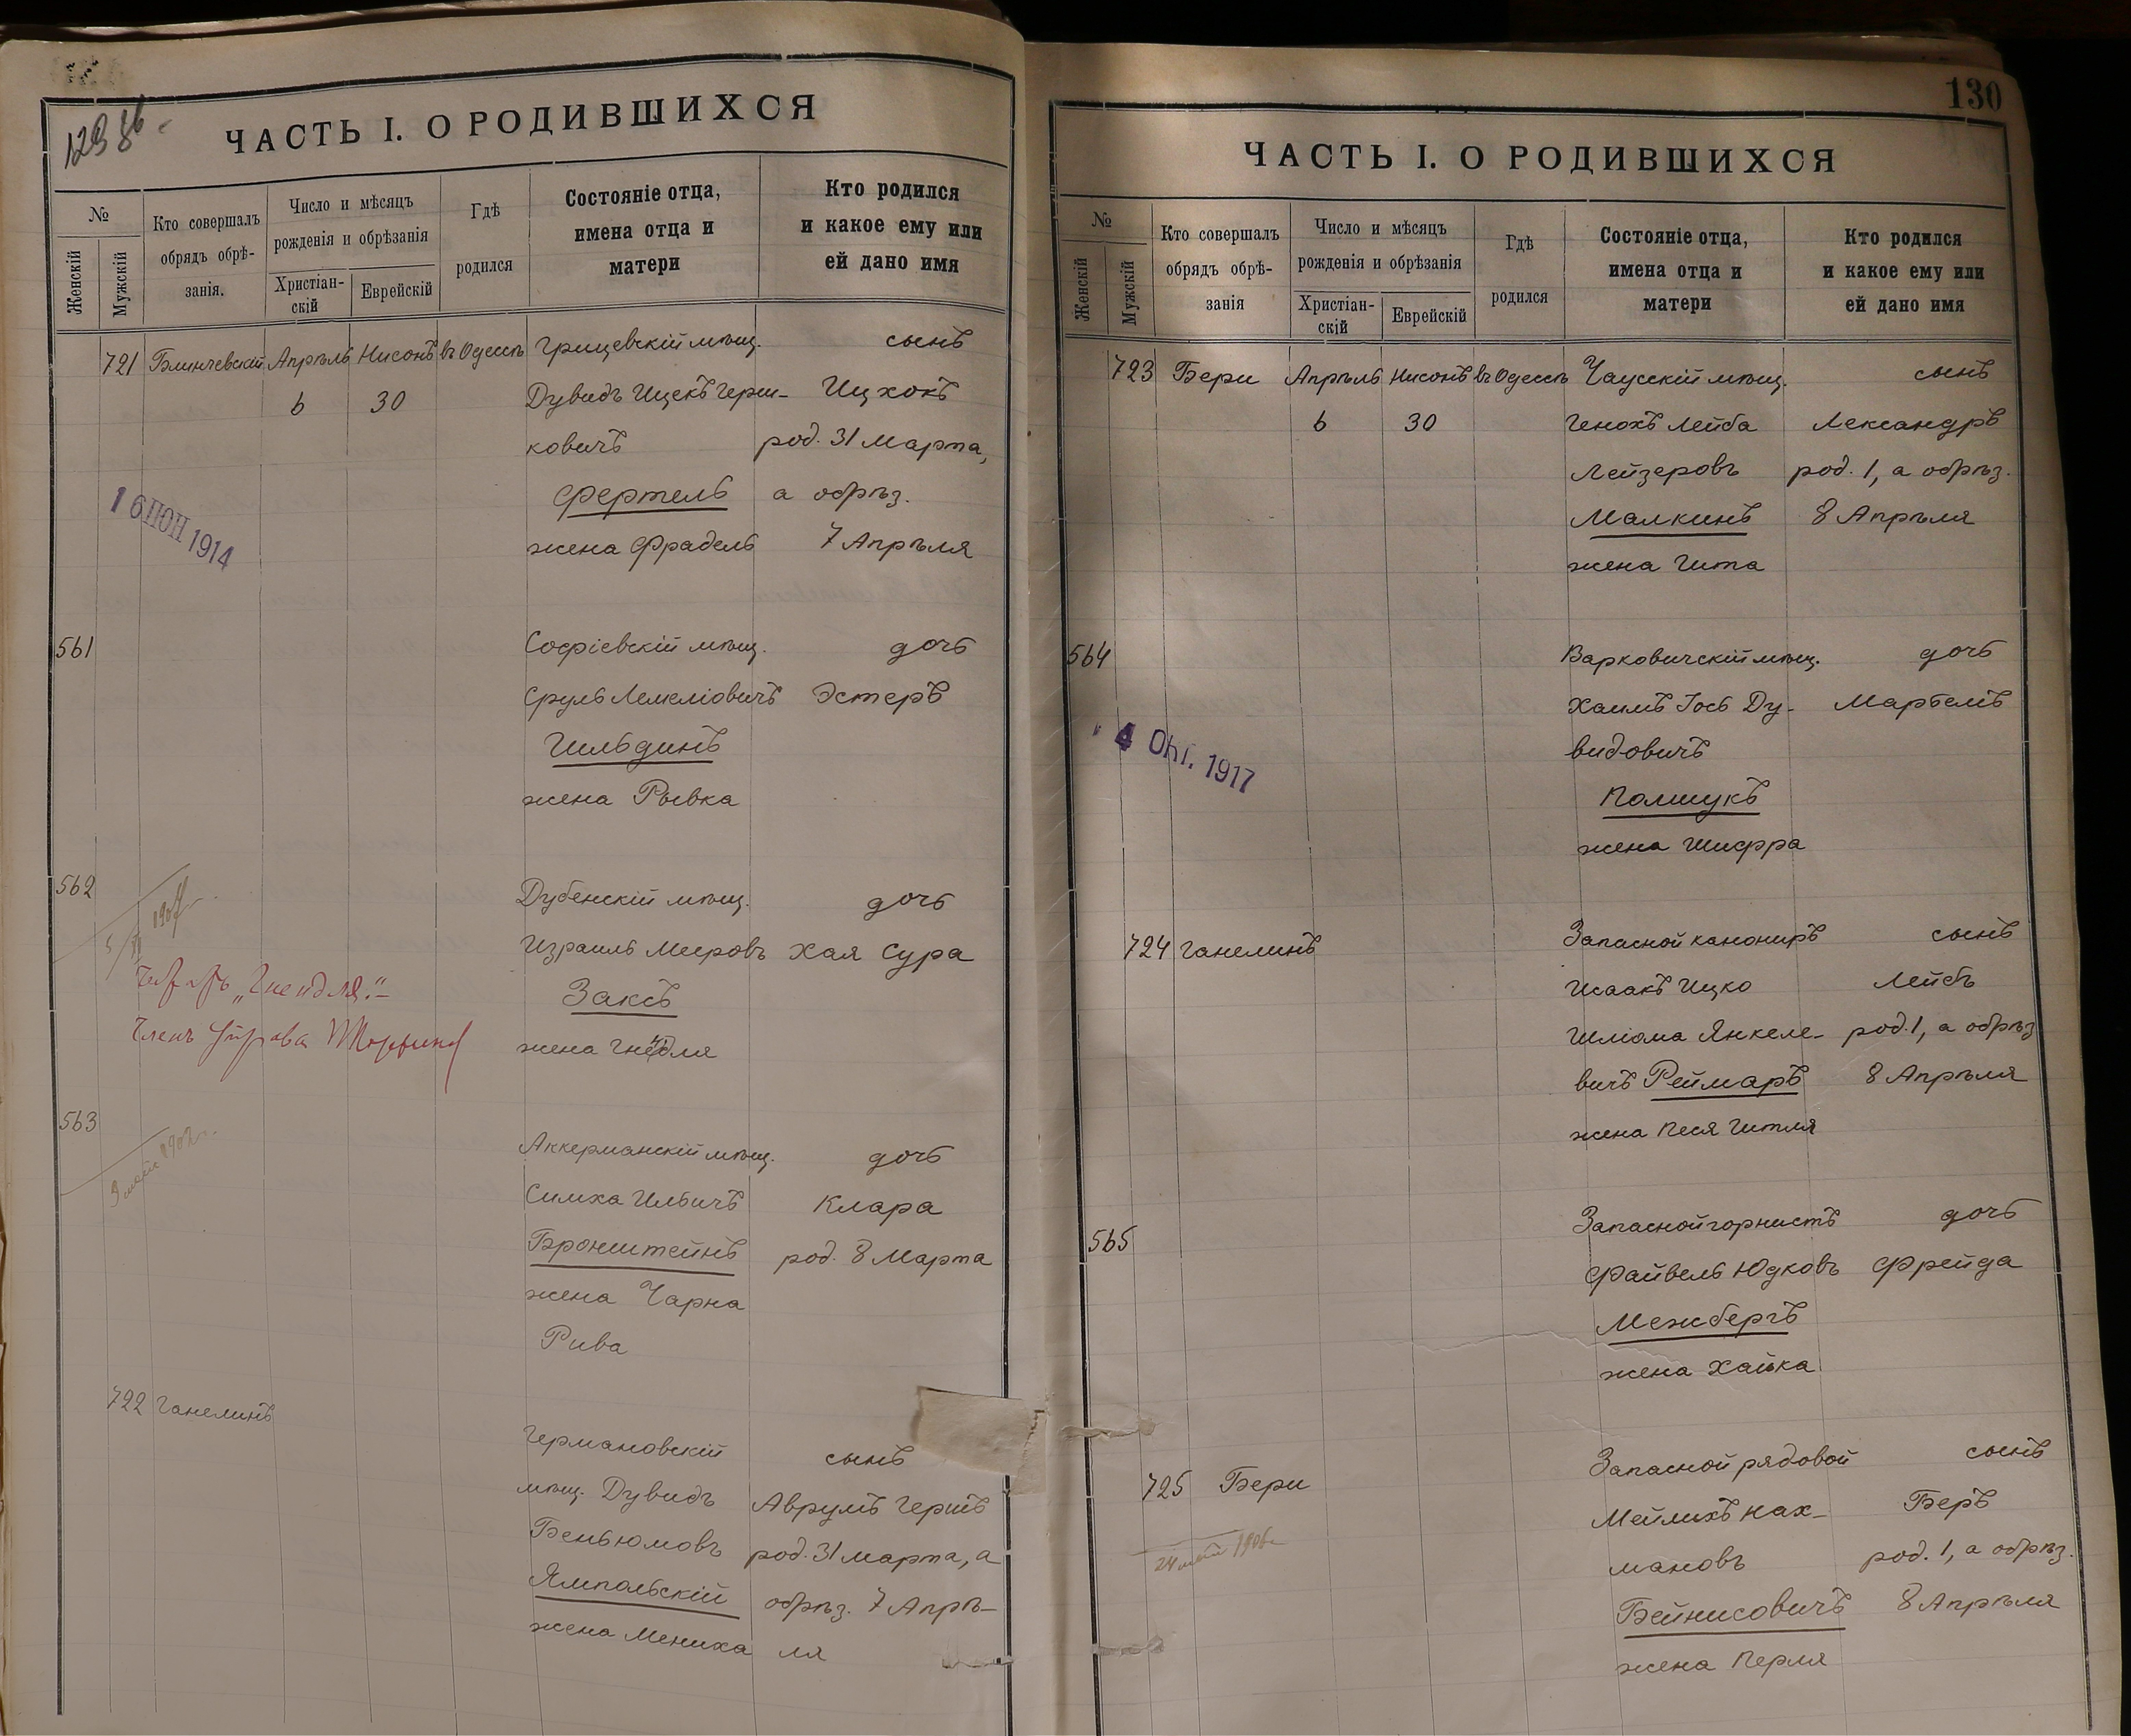 129 об
ЧАСТЬ I. О РОДИВШИХСЯ
№
Женскій
Мужскій
Кто совершалъ
обрядъ обрѣ-
занія.
Число и мѣсяцъ
рожденія и обрѣзанія
Христіан-
скій
Еврейскій
Гдѣ
родился
Состояніе отца,
имена отца и
матери
Кто родился
и какое ему или
ей дано имя
721 Блинчевскій Апрѣль Нисонъ въ Одессѣ Грицевскій мѣщ. сынъ
6 30 Дувидъ Ицекъ Герш- Ицхокъ
ковичъ род. 31 Марта,
Фертель а обрѣз.
жена Фрадель 7 Апрѣля
16 ІЮН 1914
561 Софіевскій мѣщ. дочь
Сруль Лемеліовичъ Эстеръ
Гильдинъ
жена Рывка
562 Дубенскій мѣщ. дочь
Израиль Мееровъ Хая Сура
Заксъ
жена
„Гнендля."
Членъ Управы
563 Аккерманскій мѣщ. дочь
Симха Ильичъ Клара
Бронштейнъ род. 8 Марта
жена Чарна
Рива
722 Ганелинъ Германовскій сынъ
мѣщ. Дувидъ Аврумъ Гершъ
Беньюмовъ род. 31 Марта, а
Ямпольскій обрѣз. 7 Апрѣ-
жена Мениха ля
130
ЧАСТЬ I. О РОДИВШИХСЯ
№
Женскій
Мужскій
Кто совершалъ
обрядъ обрѣ-
занія
Число и мѣсяцъ
рожденія и обрѣзанія
Христіан-
скій
Еврейскій
Гдѣ
родился
Состояніе отца,
имена отца и
матери
Кто родился
и какое ему или
ей дано имя
723 Бери Апрѣль Нисонъ въ Одессѣ Чаусскій мѣщ. сынъ
6 30 Генохъ Лейба Александръ
Лейзеровъ род. 1, а обрѣз.
Малкинъ 8 Апрѣля
жена Гита
564 Варковичскій мѣщ. дочь
Хаимъ Іось Ду- Марьемъ
видовичъ
Полищукъ
жена Шифра
4 Окт. 1917
724 Ганелинъ Запасной канониръ сынъ
Исаакъ Ицко Лейбъ
Шліома Янкеле- род. 1, а обрѣз
вичъ Реймаръ 8 Апрѣля
жена Песя Гитля
565 Запасной горнистъ дочь
Файвель Юдковъ Фрейда
Межбергъ
жена Хайка
725 Бери Запасной рядовой сынъ
Мейлихъ Нах- Беръ
мановъ род. 1, а обрѣз.
Бейнисовичъ 8 Апрѣля
жена Перля